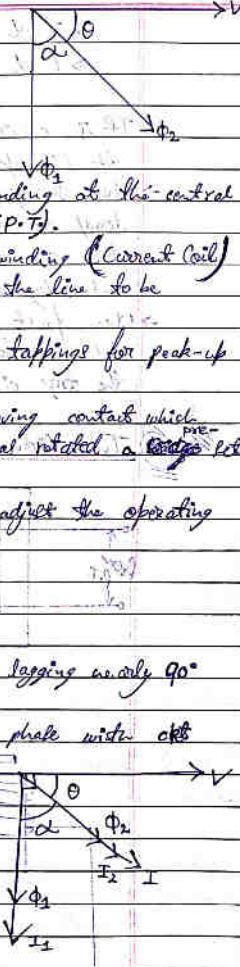 V
θ
α
Φ2
Φ1
nding at the central
P.T.).
winding (Current Coil)
the line to be
tappings for peak-up
ving contact which
as rotated a pre- set
adjust the operating
lagging nearly 90°
phase with
V
θ
α
Φ2
I2
I
Φ1
I1